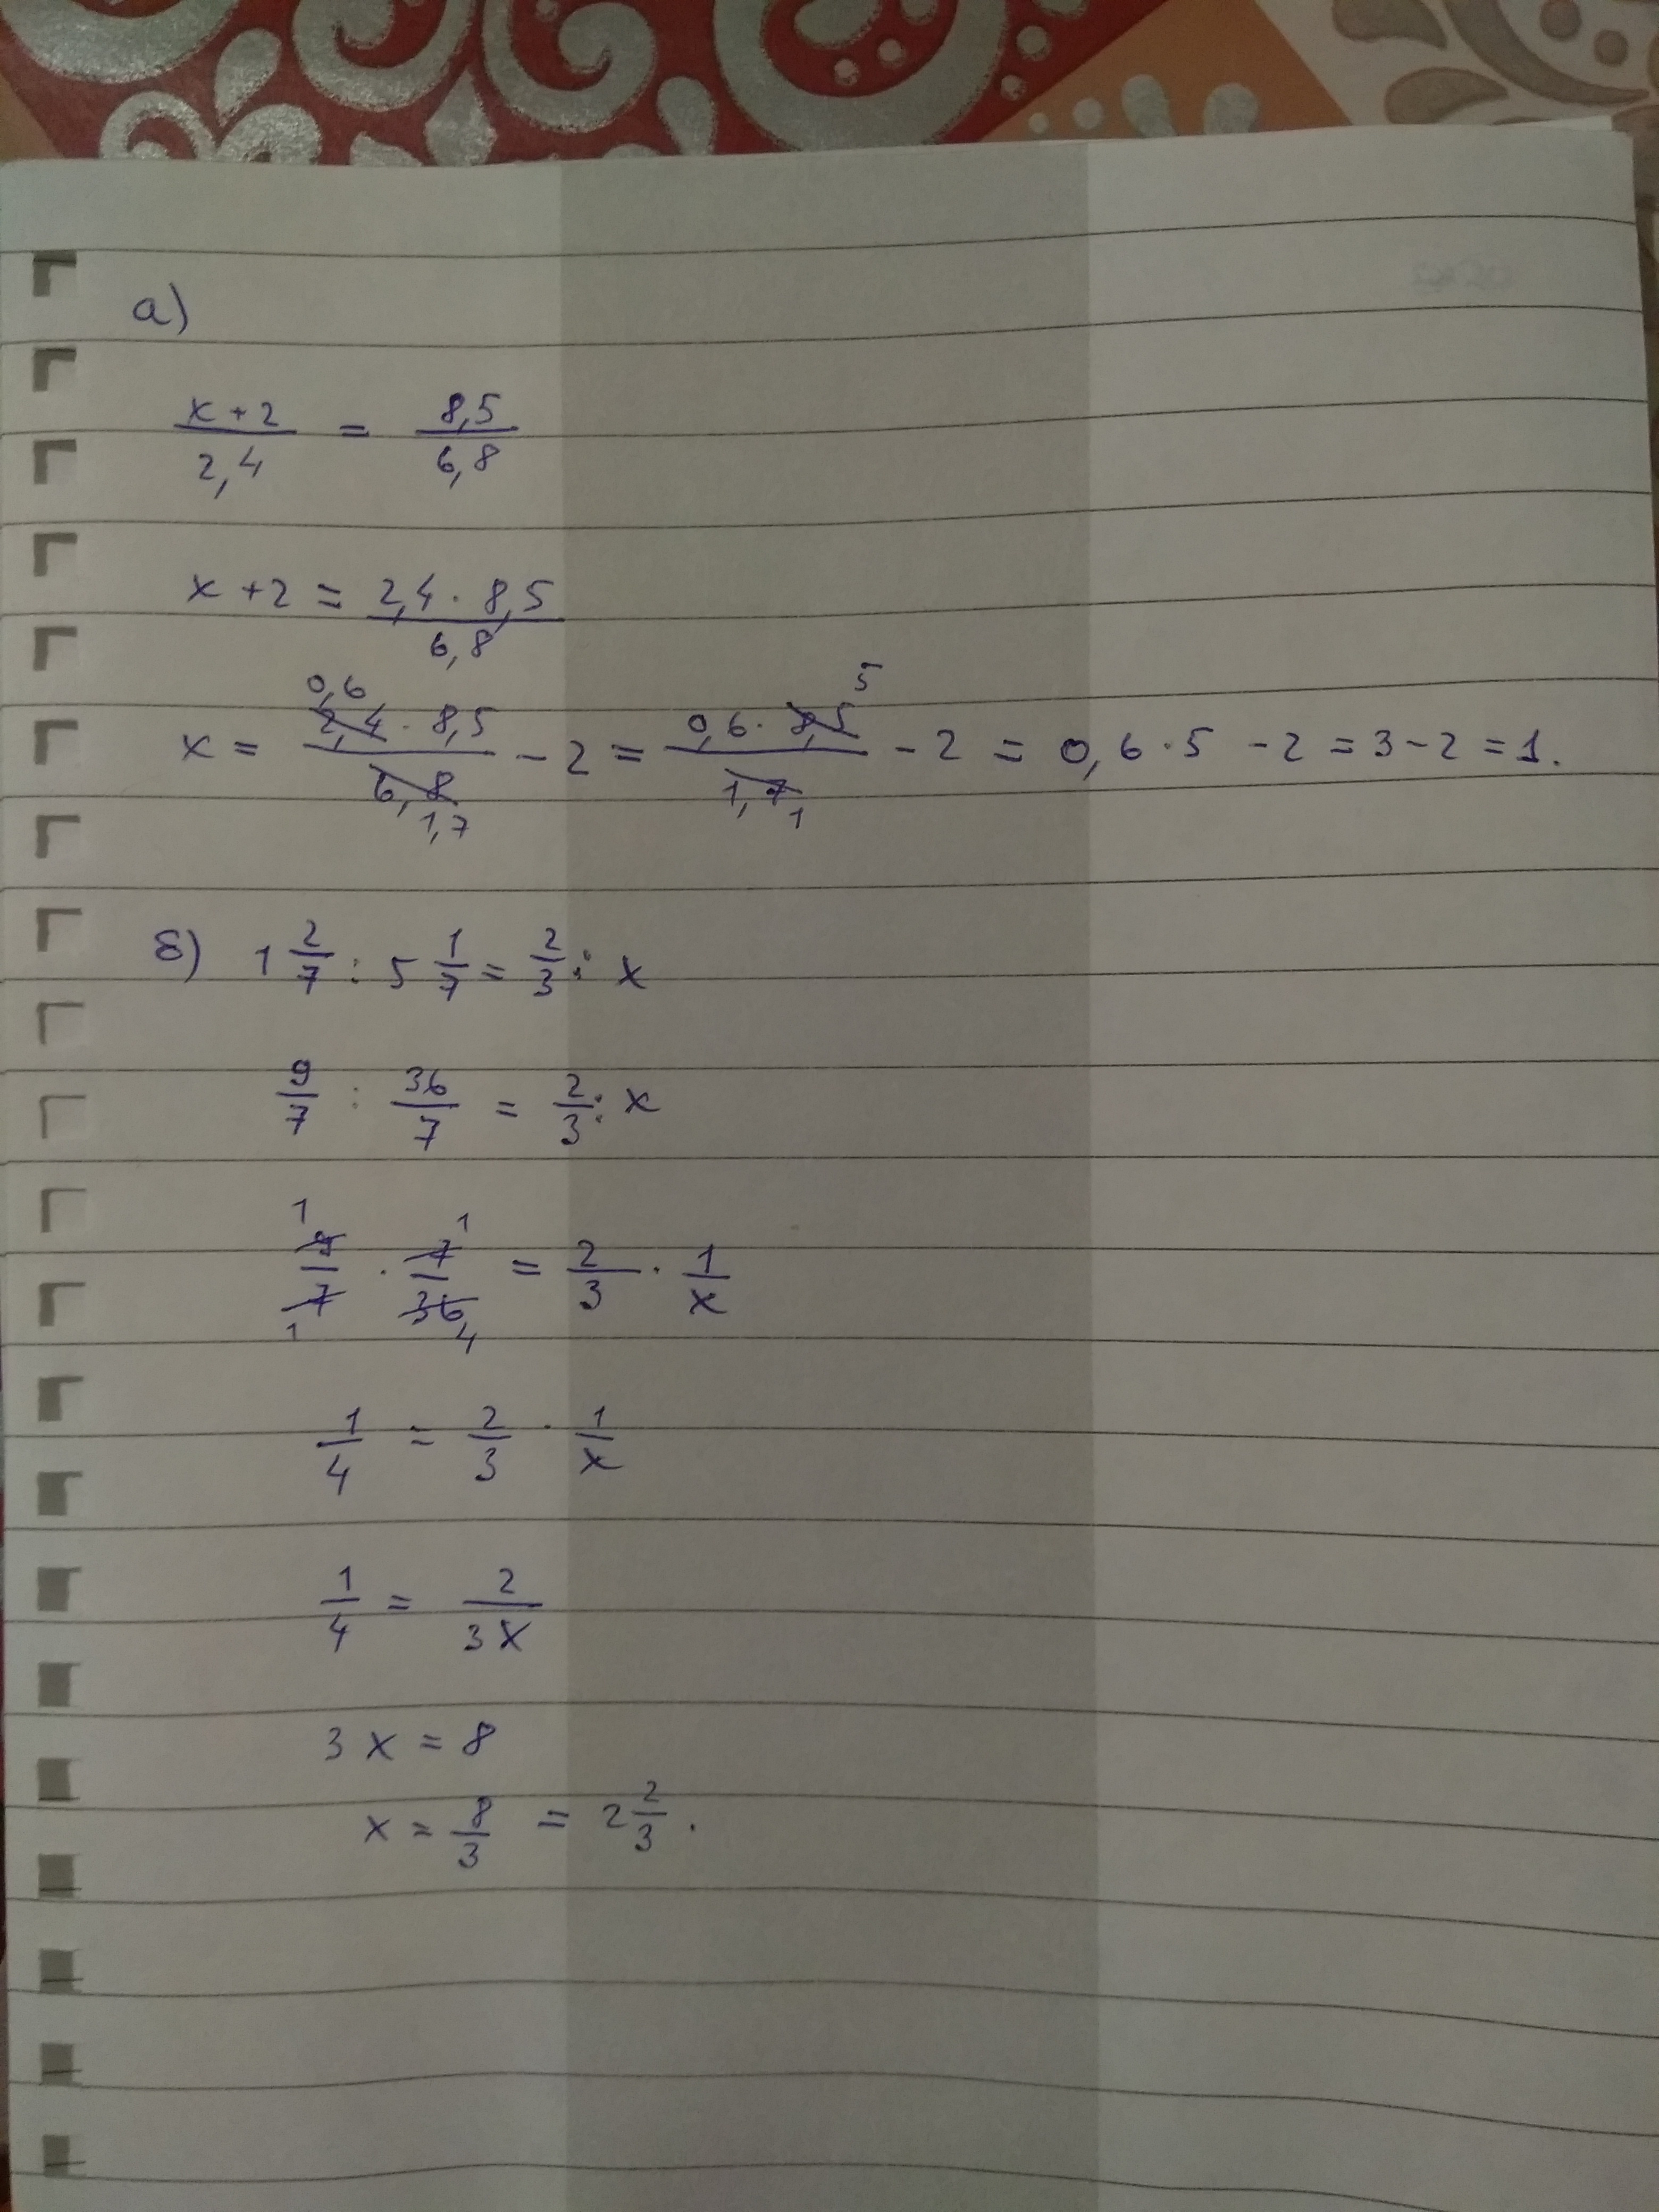 а)
x + 2 / 2,4 = 8,5 / 6,8
x + 2 = 2,4 · 8,5 / 6,8
x = 0,6 2,4 · 8,5 / 6,8 1,7 - 2 = 0,6 · 8,5 5 / 1,7 1 - 2 = 0,6 · 5 - 2 = 3 - 2 = 1.
б) 1 2/7 : 5 1/7 = 2/3 : x
9/7 : 36/7 = 2/3 : x
1 9/7 1 · 7 1/36 4 = 2/3 · 1/x
1/4 = 2/3 · 1/x
1/4 = 2/3x
3x = 8
x = 8/3 = 2 2/3.